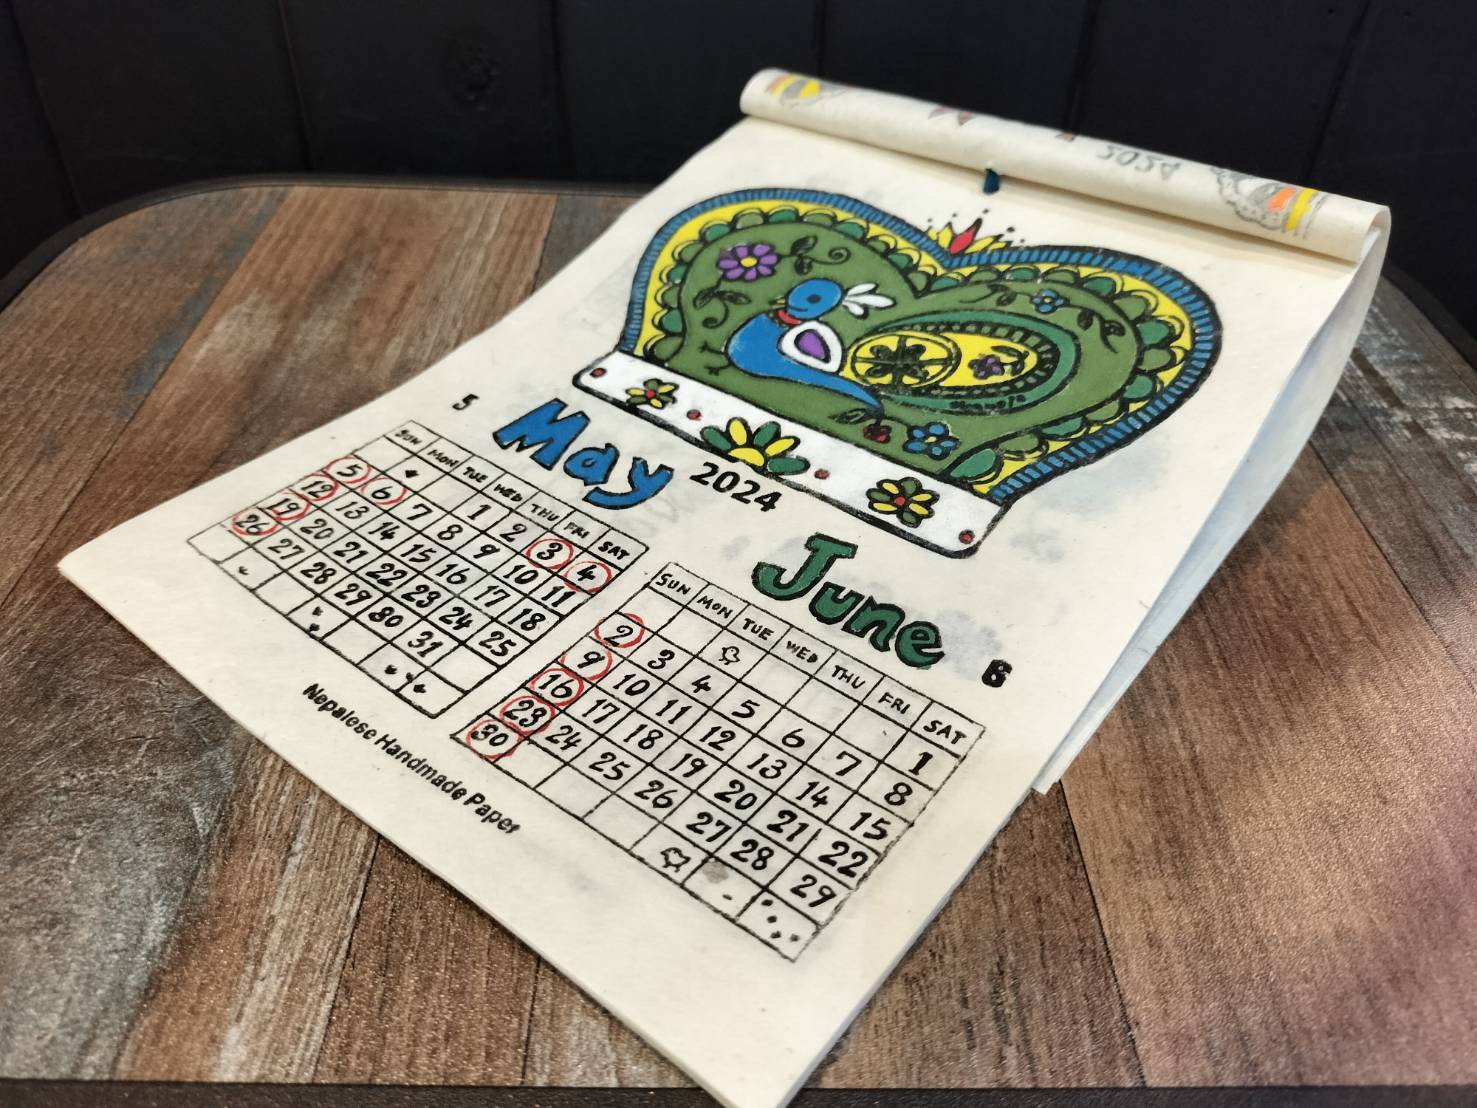 2024
5 May 2024
SUN MON TUE WED THU FRI SAT
1 2 3 4
5 6 7 8 9 10 11
12 13 14 15 16 17 18
19 20 21 22 23 24 25
26 27 28 29 30 31
June 6
SUN MON TUE WED THU FRI SAT
1
2 3 4 5 6 7 8
9 10 11 12 13 14 15
16 17 18 19 20 21 22
23 24 25 26 27 28 29
30
Nepalese Handmade Paper